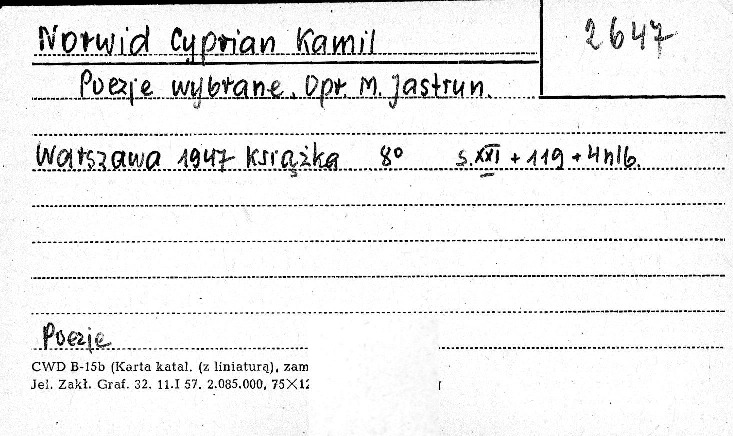 Norwid Cyprian Kamil
2647
Poezje wybrane. Opr. M. Jastrun.
Warszawa 1947 Książka 8° s. XXI + 119 + 4 nlb.
Poezje
CWD B-15b (Karta katal. (z liniaturą), zam
Jel. Zakł. Graf. 32. 11.I 57. 2.085.000, 75×12